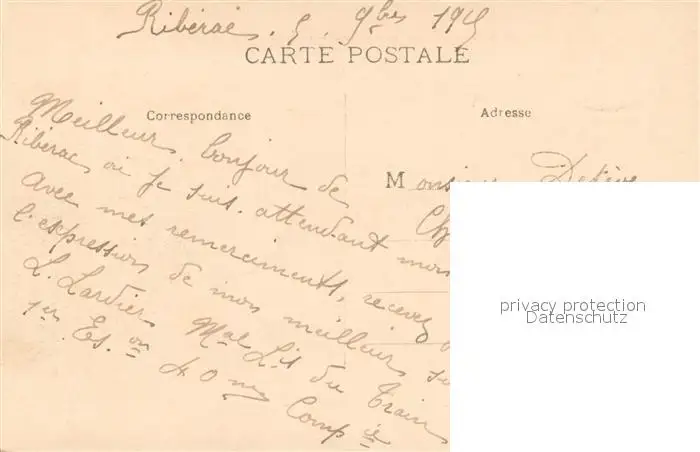 Ribérac. 5. 9bres 191
CARTE POSTALE
Correspondance
Adresse
Monsieur
Meilleur bonjour de
Ribérac où je suis attendant mon
Avec mes remerciments, recevez
l'expression de mon meilleur
L. Lardier Mal L.is du Train
1er Es.on 40me Comp ie
privacy protection
Datenschutz